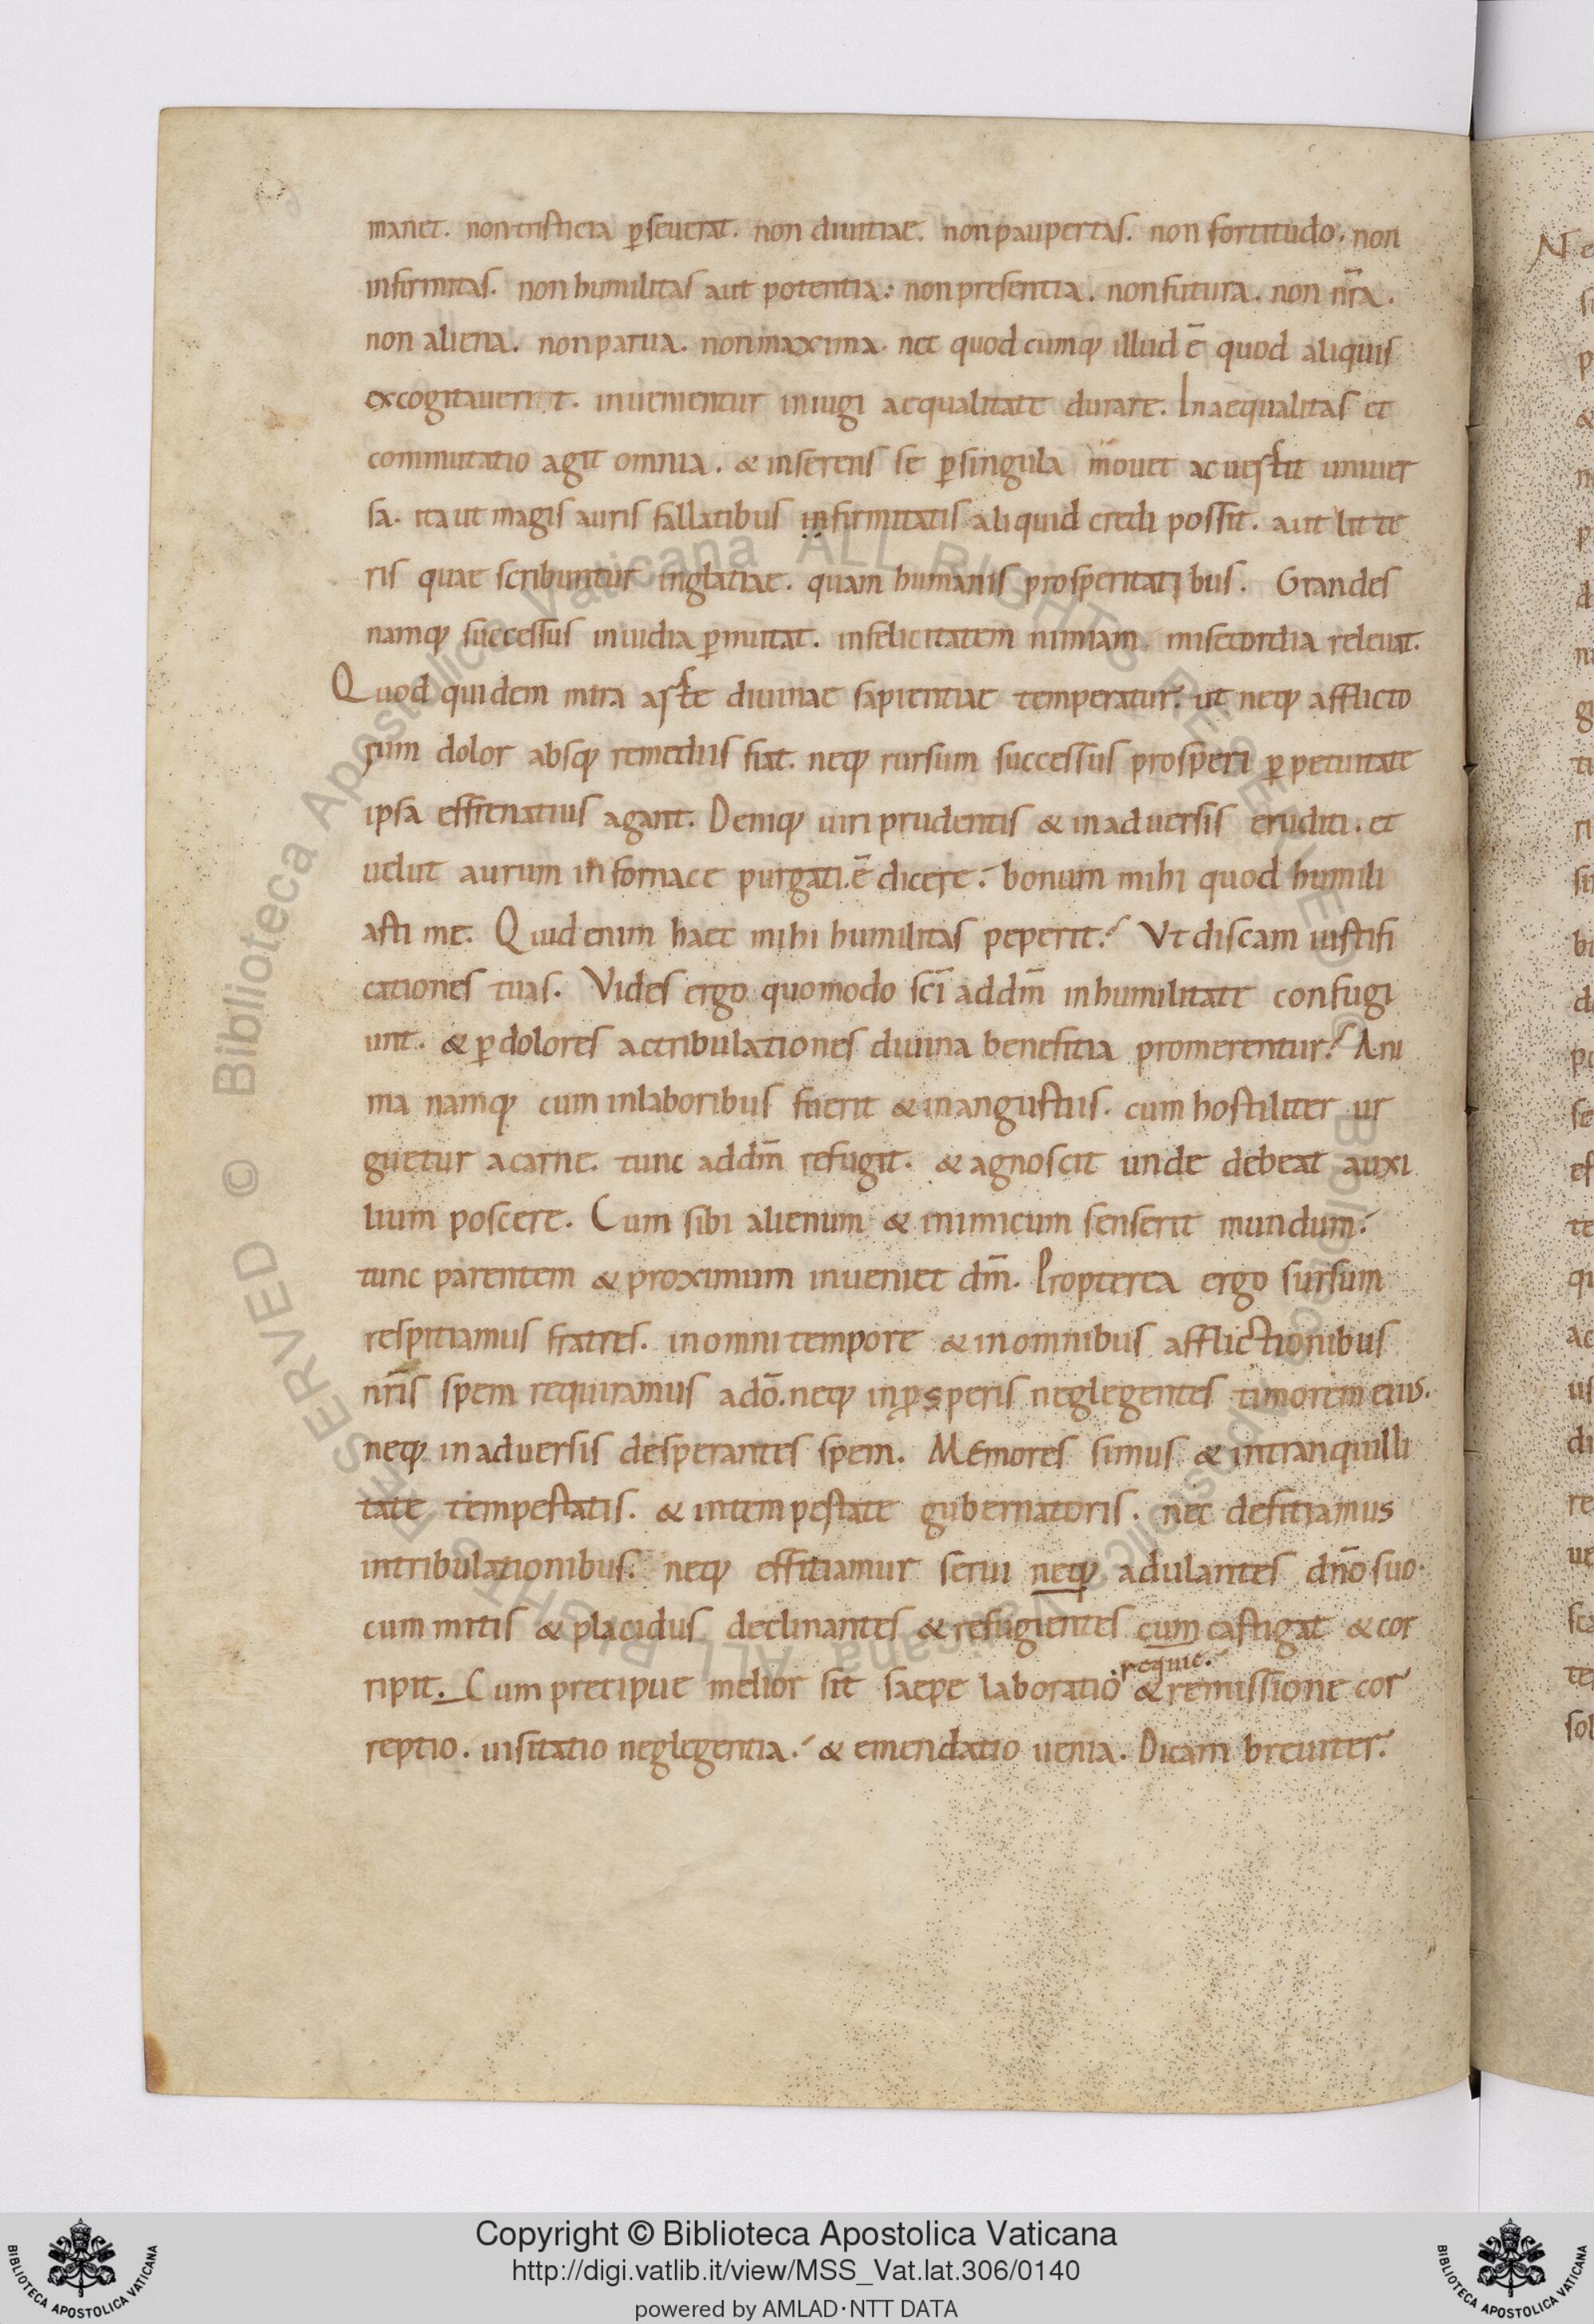 manet. non tristicia ꝑseuerat. non diuitiae. non paupertas. non fortitudo. non
infirmitas. non humilitas aut potentia: non presentia. non futura. non nr̄a.
non aliena. non parua. non maxima. nec quod cumq; illud ē quod aliquis
excogitauerit. inuenientur in iugi aequalitate durare. Inaequalitas et
commutatio agit omnia. & inserens se ꝑ singula mouet ac uertit uniuer
sa. ita ut magis auris fallatibus infirmitatis aliquid credi possit. aut litte
ris quae scribuntur in glatiae. quam humanis prosperitatibus. Grandes
namq; successus inuidia ꝑmutat. infelicitatem nimiam misecordia releuat.
Quod quidem mira arte diuinae sapientiae temperatur. ut neq; afflicto
rum dolor absq; remediis fiat. neq; rursum successus prosperi ꝑpetuitate
ipsa effrenatius agant. Deniq; uiri prudentis & in aduersis eruditi. et
uelut aurum in fornace purgati. ē dicere. bonum mihi quod humili
asti me. Quid enim haec mihi humilitas peperit? Vt discam iustifi
cationes tuas. Vides ergo quomodo sc̄i ad dm̄ in humilitate confugi
unt. & ꝑ dolores ac tribulationes diuina benefitia promerentur? Ani
ma namq; cum in laboribus fuerit & in angustiis. cum hostiliter ur
guetur a carne. tunc ad dm̄ refugit. & agnoscit unde debeat auxi
lium poscere. Cum sibi alienum & inimicum senserit mundum.
tunc parentem & proximum inueniet dm̄. Propterea ergo sursum
respitiamus fratres. in omni tempore & in omnibus afflictionibus
nr̄is spem requiramus a dō. neq; in ꝓsperis neglegentes timorem eius.
neq; in aduersis desperantes spem. Memores simus & in tranquilli
tate tempestatis. & in tempestate gubernatoris. nec defitiamus
in tribulationibus. neq; effitiamur serui neq; adulantes dn̄o suo.
cum mitis & placidus declinantes & refugientes cum castigat & cor
ripit. Cum precipue melior sit saepe laboratio .requie. & remissione cor
reptio. uisitatio neglegentia. & emendatio uenia. Dicam breuiter.
Copyright © Biblioteca Apostolica Vaticana
http://digi.vatlib.it/view/MSS_Vat.lat.306/0140
powered by AMLAD·NTT DATA